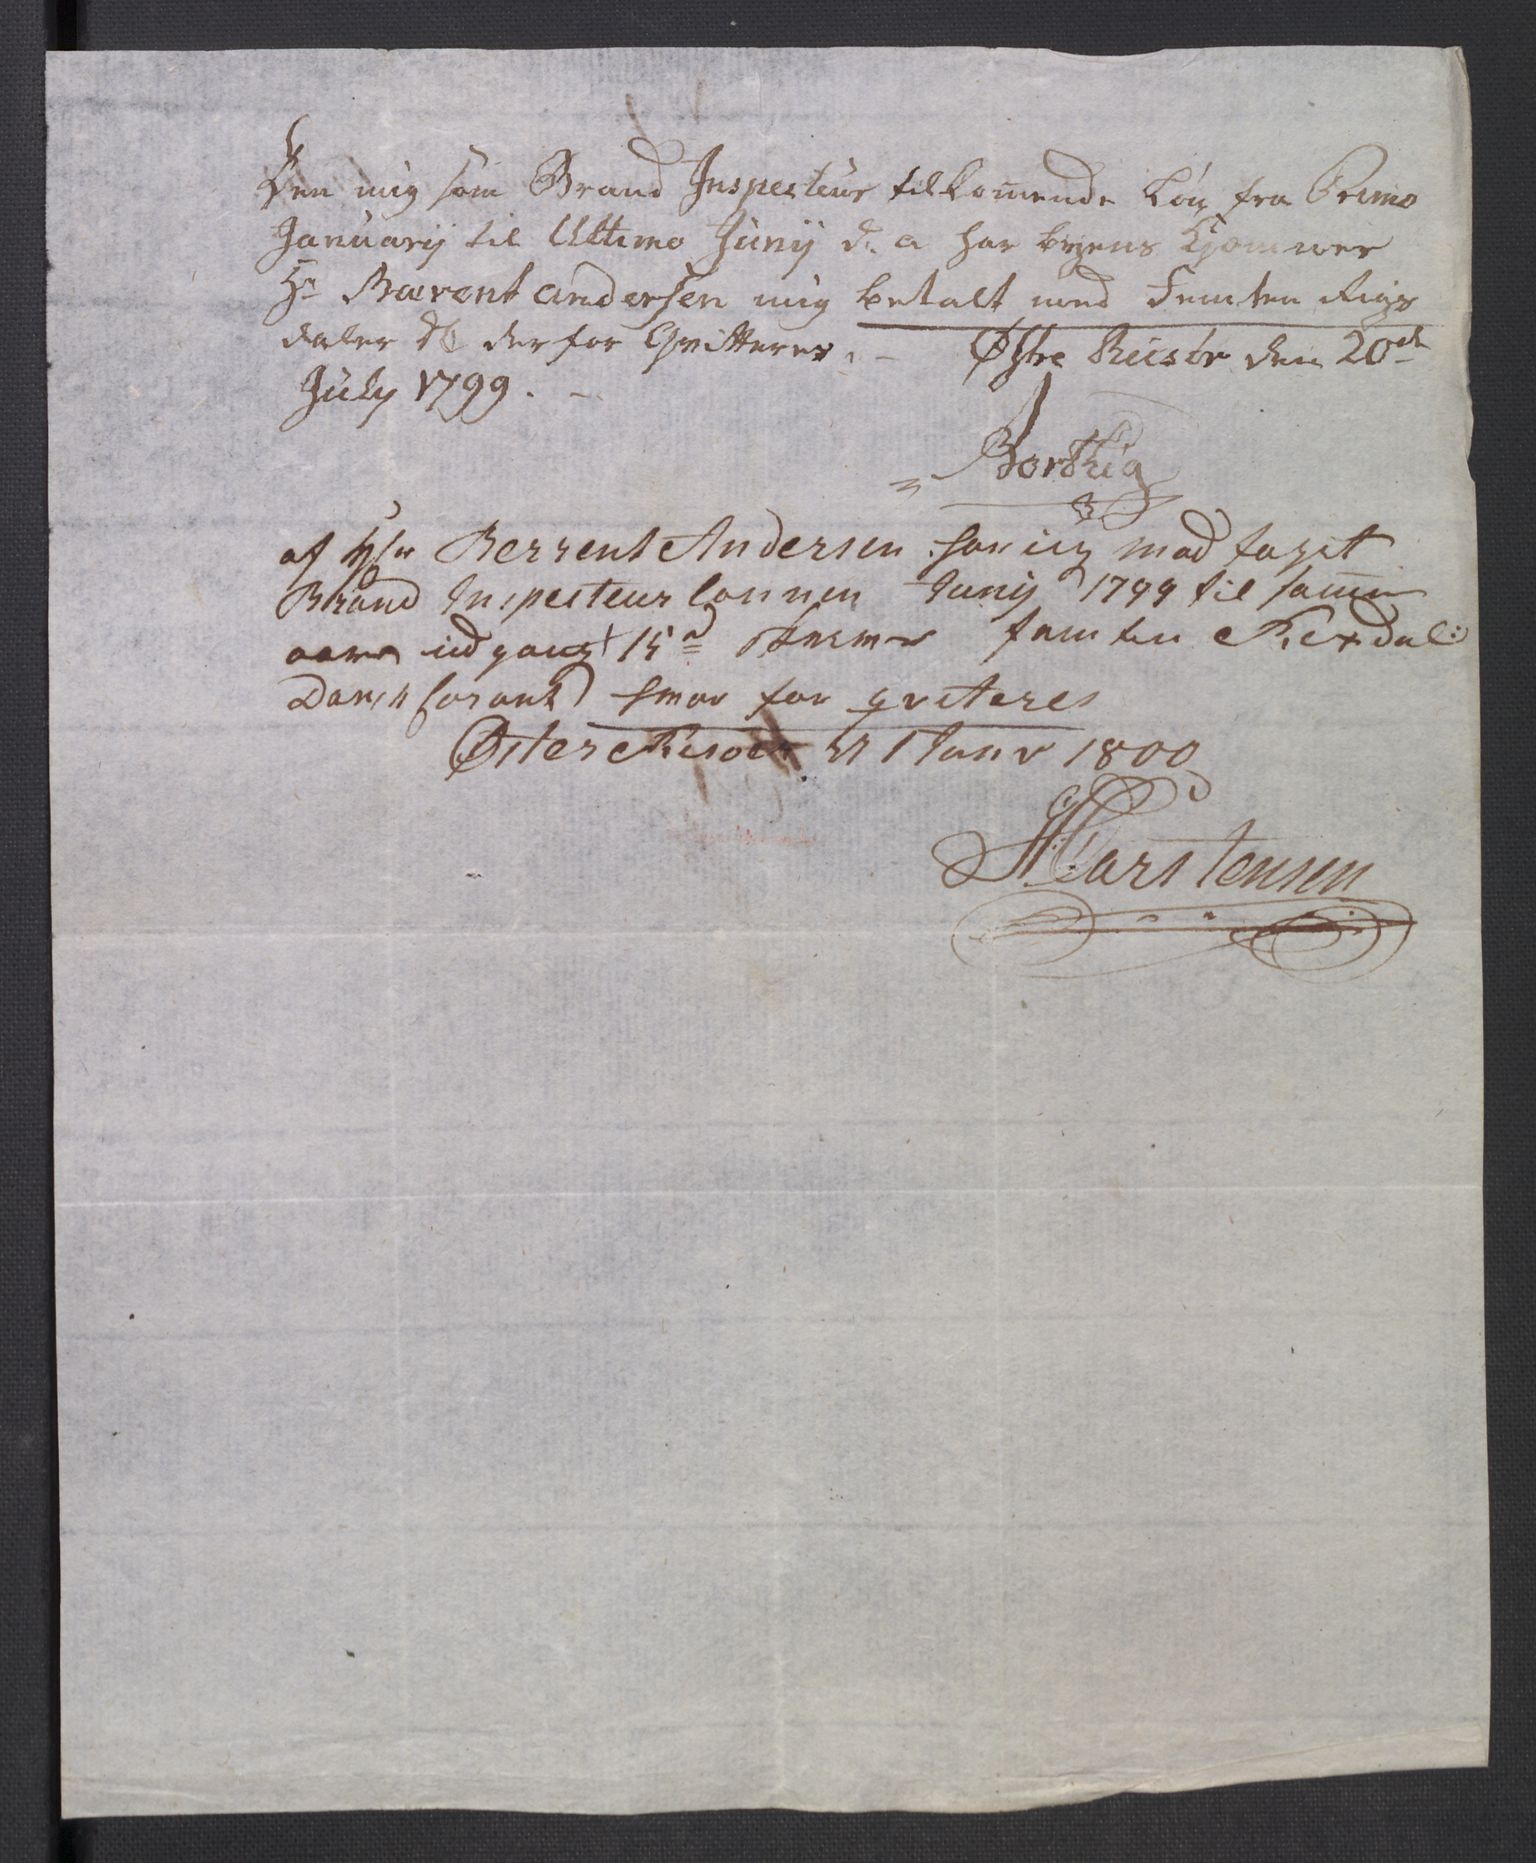 Den mig som Brand Inspecteur tilkomende Løn fra Primo
Januarij til Ultimo Junij d: a har byens Kjæmner
Hr Bærent Andersen mig betalt med Femten Rigs
daler derfor Qvitteres. - Østre Riisør den 20de
July 1799. -
af Hr Berrent Andersen har ieg mod taget
Brand Inspecteur Lønnen Junij 1799 til samme
aars udgang 15 femten Rixdal:
Dansk Corant hvor for qviteres
Øster Riisøer d 1 Janv 1800
Carstensen